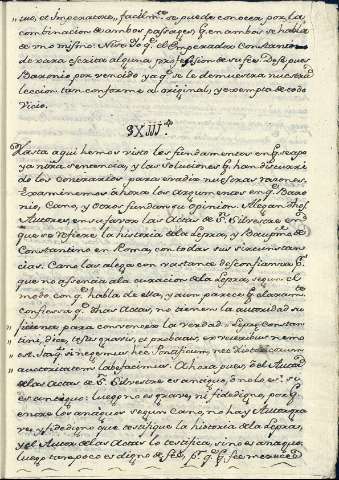 tino, et Imperatore, facilm.te se puede conocer por la
combinacion de ambos passages, q. en ambos se habla
de uno mismo. Niro Jo q. el Emperador Constan
de xara escrita alguna profession de su fee. Dese pues
Baronio por vencido ya q. se le demuestra nuestra
leccion tan conforme al original, y exempta de todo
vicio.
§XIII.
Hasta aqui hemos visto los fundamentos en q. se apo
ya nra sentencia, y las soluciones q. han discurri
do los Contrarios para evadir nuestras razones.
Examinemos ahora los argumentos en q. Baro
nio, Cano, y Otros fundan su opinion. Alegan dhos
Autores en su favor las Actas de S. Silvestre en
que se refiere la historia de la lepra, y Baupmo de
Constantino en Roma, con todas sus circunstan
cias. Cano las alega con bastante desconfianza
que no assencia a la curacion de la Lepra, segun el
modo con q. habla de ella, y aun parece q. claram.te
confiessa q. dhas Actas, no tienen la autoridad su
ficiente para convencer la verdad. Lepra Constan
tini, dice, testes graves, et probatos, en veteribus nemo
est. Sang. si negemus hec Pontificum, nec doctorum
auctoritatem labefacimus. Ahora pues, o el Autor
de las Actas de S. Silvestre es antiguo, o no lo es. si
es antiguo: luego no es grave, ni fidedigno, por q.
entre los antiguos segun Cano, no hay Autor gra
ve, y fidedigno que testifique la historia de la Lepra,
y el Autor de las Actas lo testifica, si no es antiguo,
luego tampoco es digno de fee, p.q.